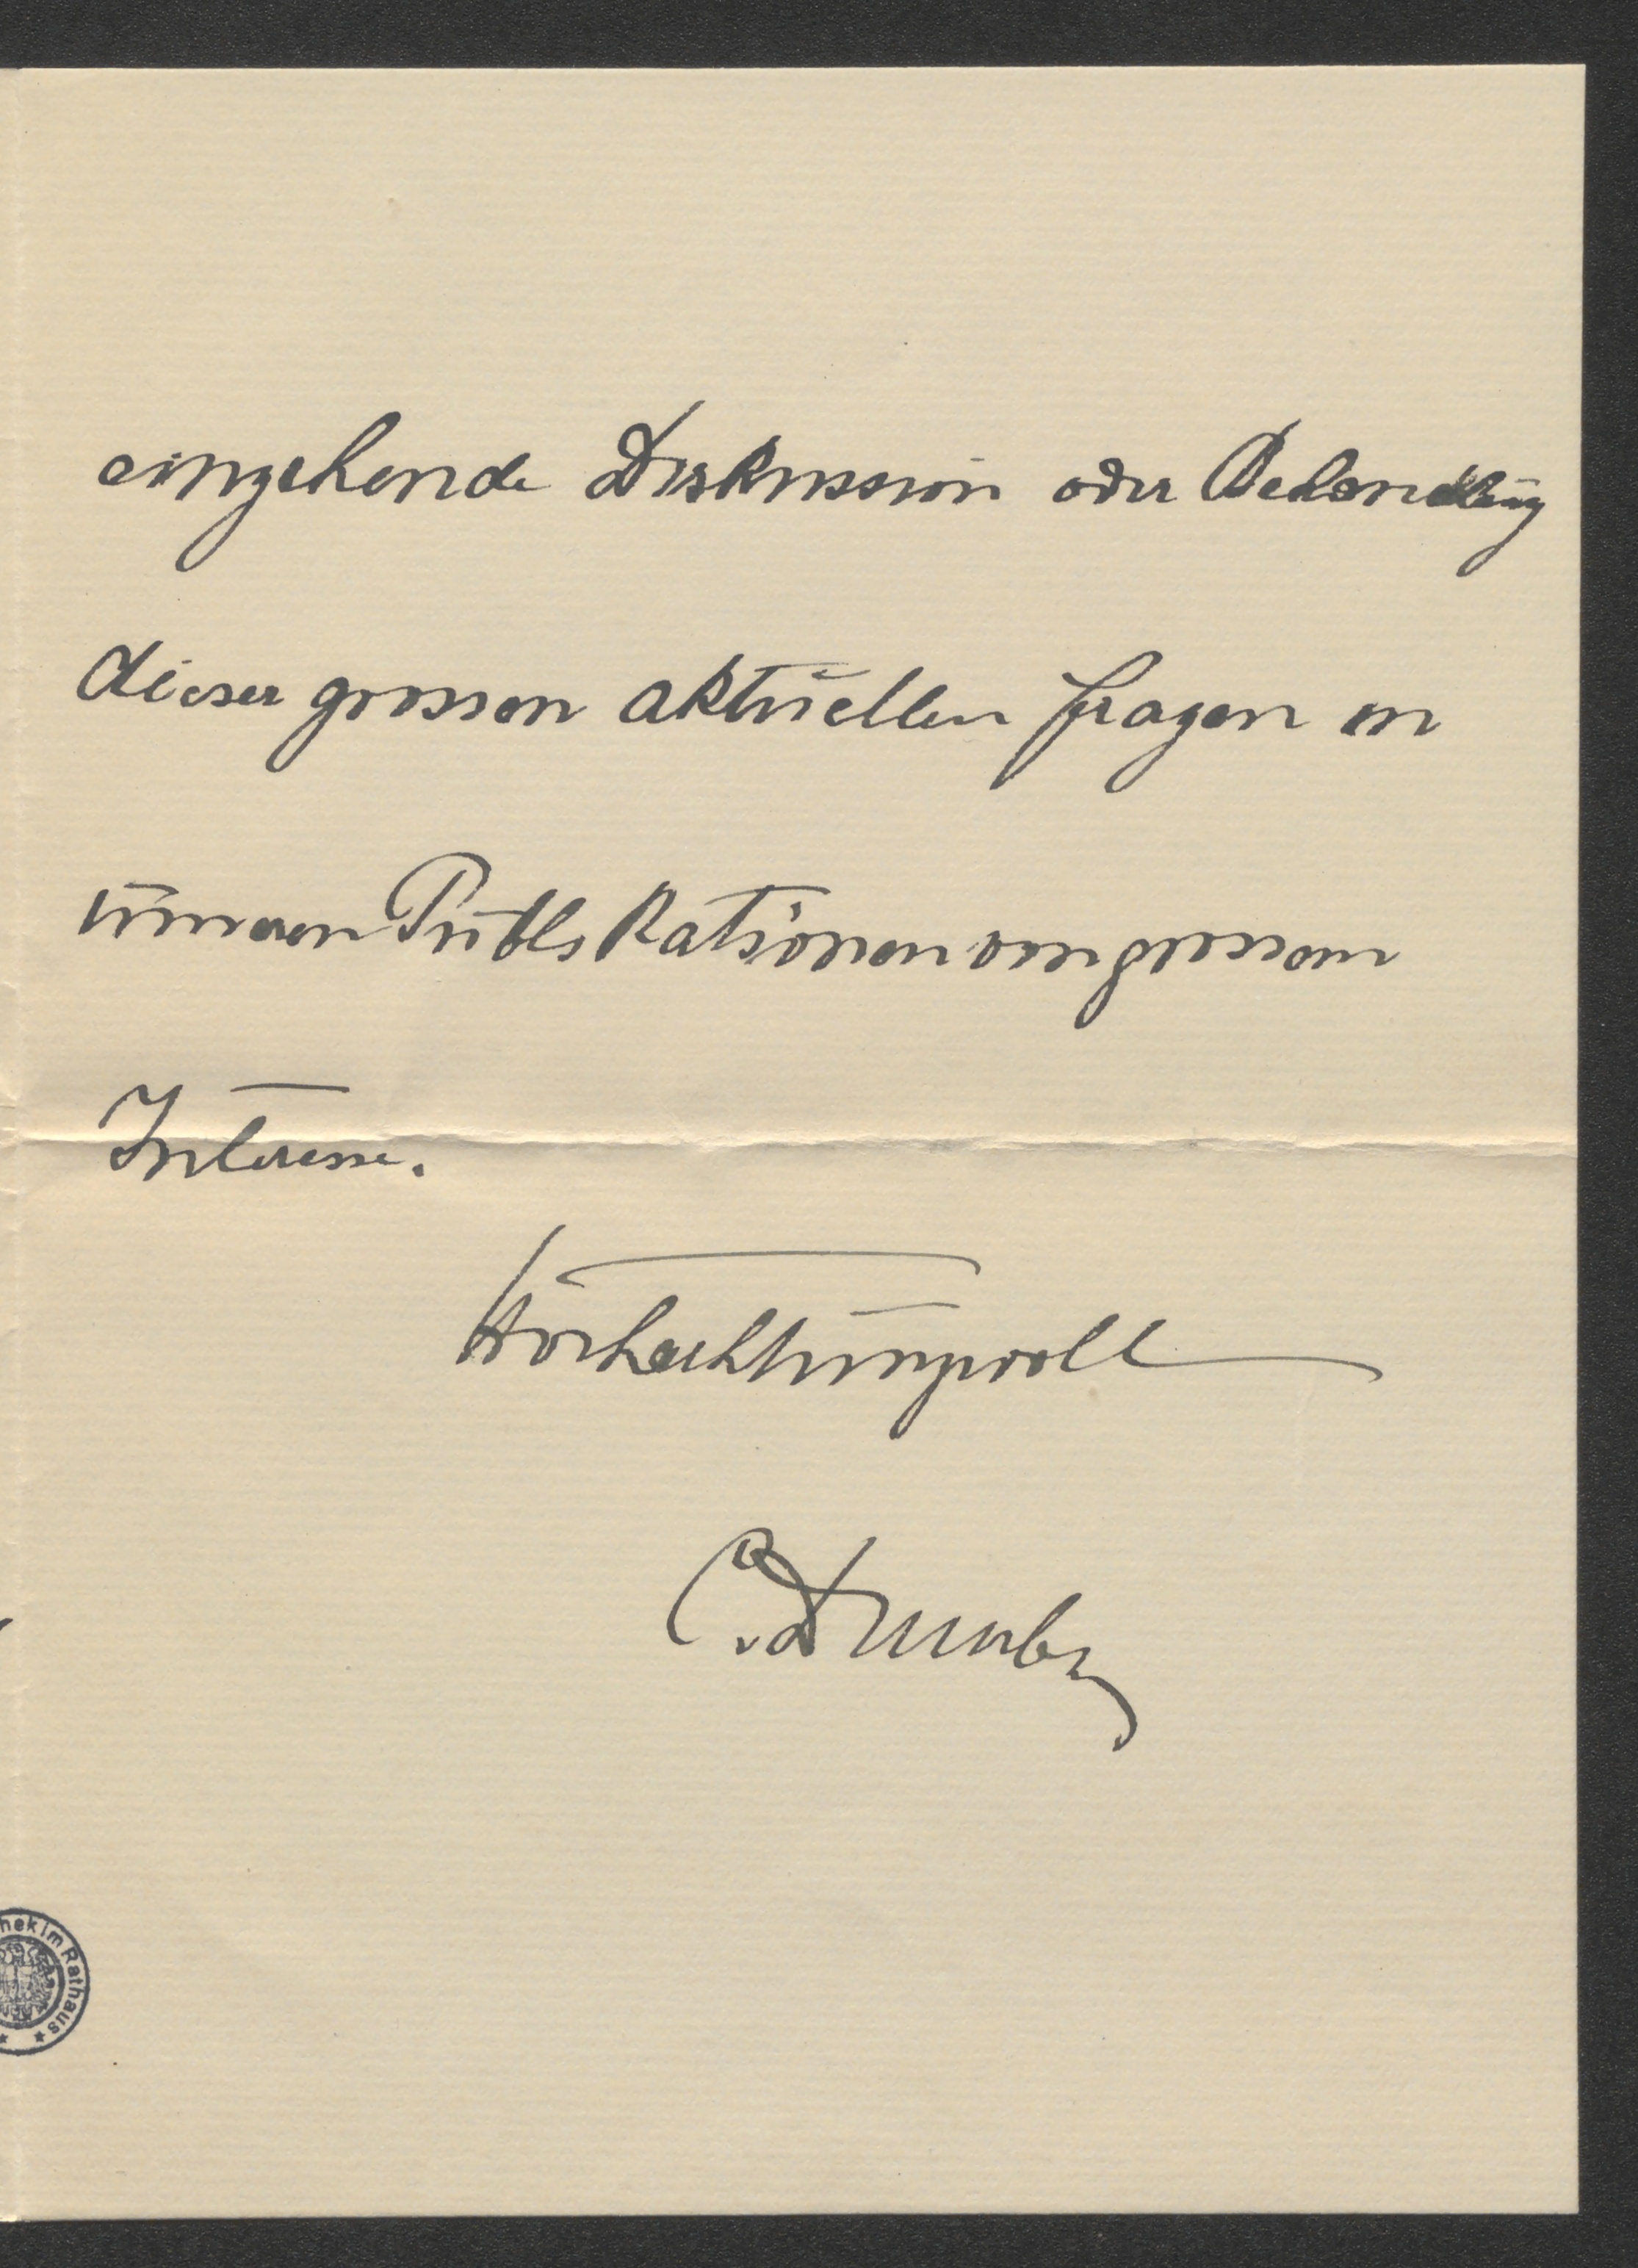 eingehende Diskussion oder Behandlung
dieser grossen aktuellen Fragen in
unseren Publikationen von grossem
Interesse.
Hochachtungsvoll
hek im Rathaus